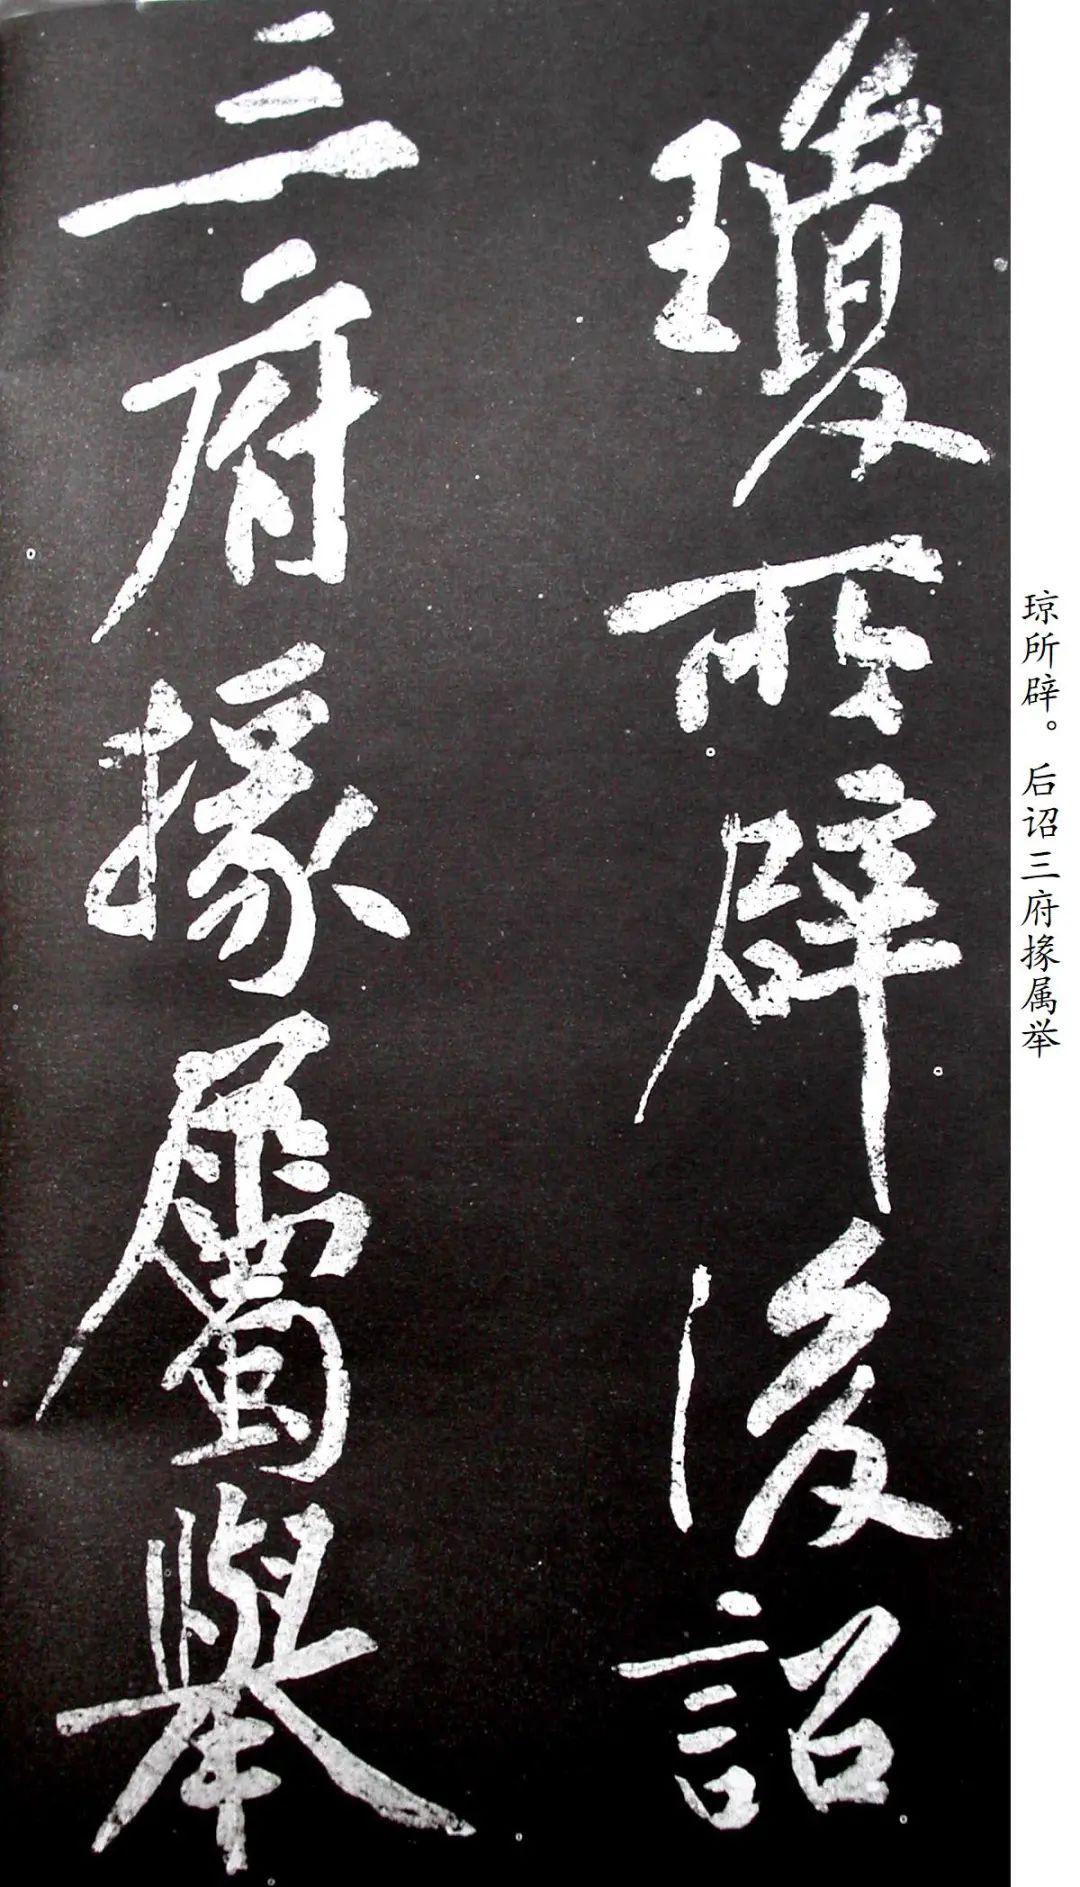 瓊所辟後詔
三府掾屬舉
琼所辟。后诏三府掾属举